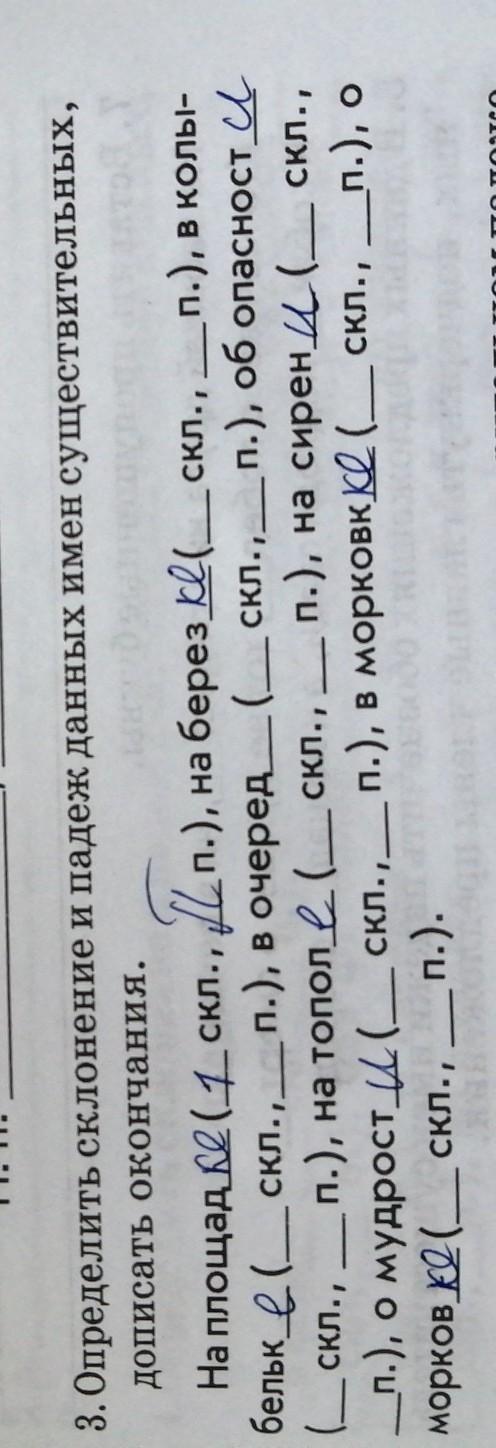 3. Определить склонение и падеж данных имен существительных,
дописать окончания.
На площад_ (1 скл., П п.), на берез_ (__ скл., __ п.), в колы-
бельке (__ скл., __ п.), в очеред__ (__ скл., __ п.), об опасности
(__ скл., __ п.), на тополе (__ скл., __ п.), на сирени (__ скл.,
__ п.), о мудрости (__ скл., __ п.), в морковк_ (__ скл., __ п.), о
морков_ (__ скл., __ п.).